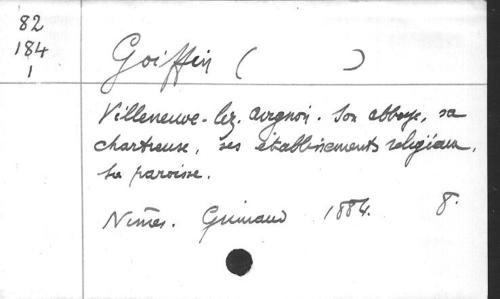 82
184
1
Goiffin ( )
Villeneuve-lez-Avignon. Son abbaye, sa
chartreuse, ses établissements religieux,
sa paroisse.
Nimes. Grimaud 1884. 8°.